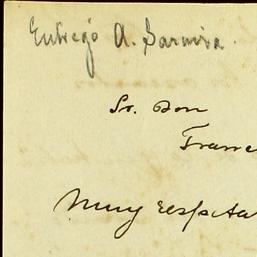 Entregó A. Sarmira.
Sr. Don
Franc
Muy respeta